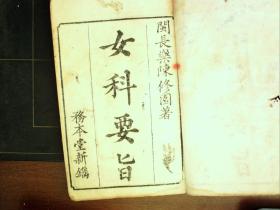 閩長樂陳修園著
女科要旨
務本堂新鐫